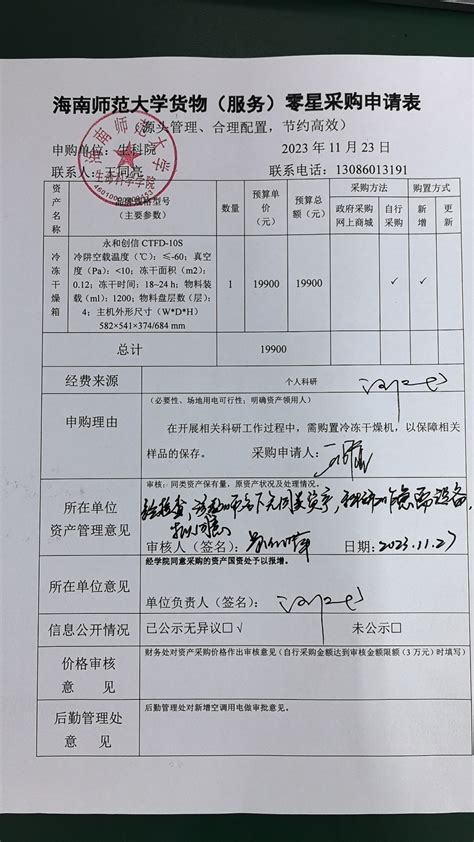 海南师范大学货物（服务）零星采购申请表
（源头管理、合理配置，节约高效）
申购单位：生科院 2023 年 11 月 23 日
联系人：王同亮 联系电话：13086013191
海南师范大学
生命科学学院
资产名称 品牌规格型号（主要参数） 数量 预算单价（元） 预算总额（元） 采购方法 购置方式
政府采购网上商城 自行采购 新增 更新
冷冻干燥箱
永和创信 CTFD-10S
冷阱空载温度（℃）：≤-60；真空
度（Pa）：<10；冻干面积（m2）：
0.12；冻干时间：18~24 h；物料装
载（ml）：1200；物料盘层数（层）：
4；主机外形尺寸（W*D*H）
582×541×374/684 mm
1 19900 19900 ✓ ✓
总计 19900
经费来源 个人科研
申购理由
（必要性、场地用电可行性；明确资产领用人）
在开展相关科研工作过程中，需购置冷冻干燥机，以保障相关
样品的保存。 采购申请人：
所在单位
资产管理意见
审核：同类资产保有量、原资产状况及处置情况。
经核查，该教师名下无同类资产，科研工作急需设备，
拟同意
审核人（签名）： 日期：2023.11.27
所在单位意见
经学院同意采购的资产国资处予以报增。
单位负责人（签名）：
信息公开情况 已公示无异议□√ 未公示□
价格审核
意 见
财务处对资产采购价格作出审核意见（自行采购金额达到审核金额限额（3 万元）时填写）
后勤管理处
意 见
后勤管理处对新增空调用电做审批意见。